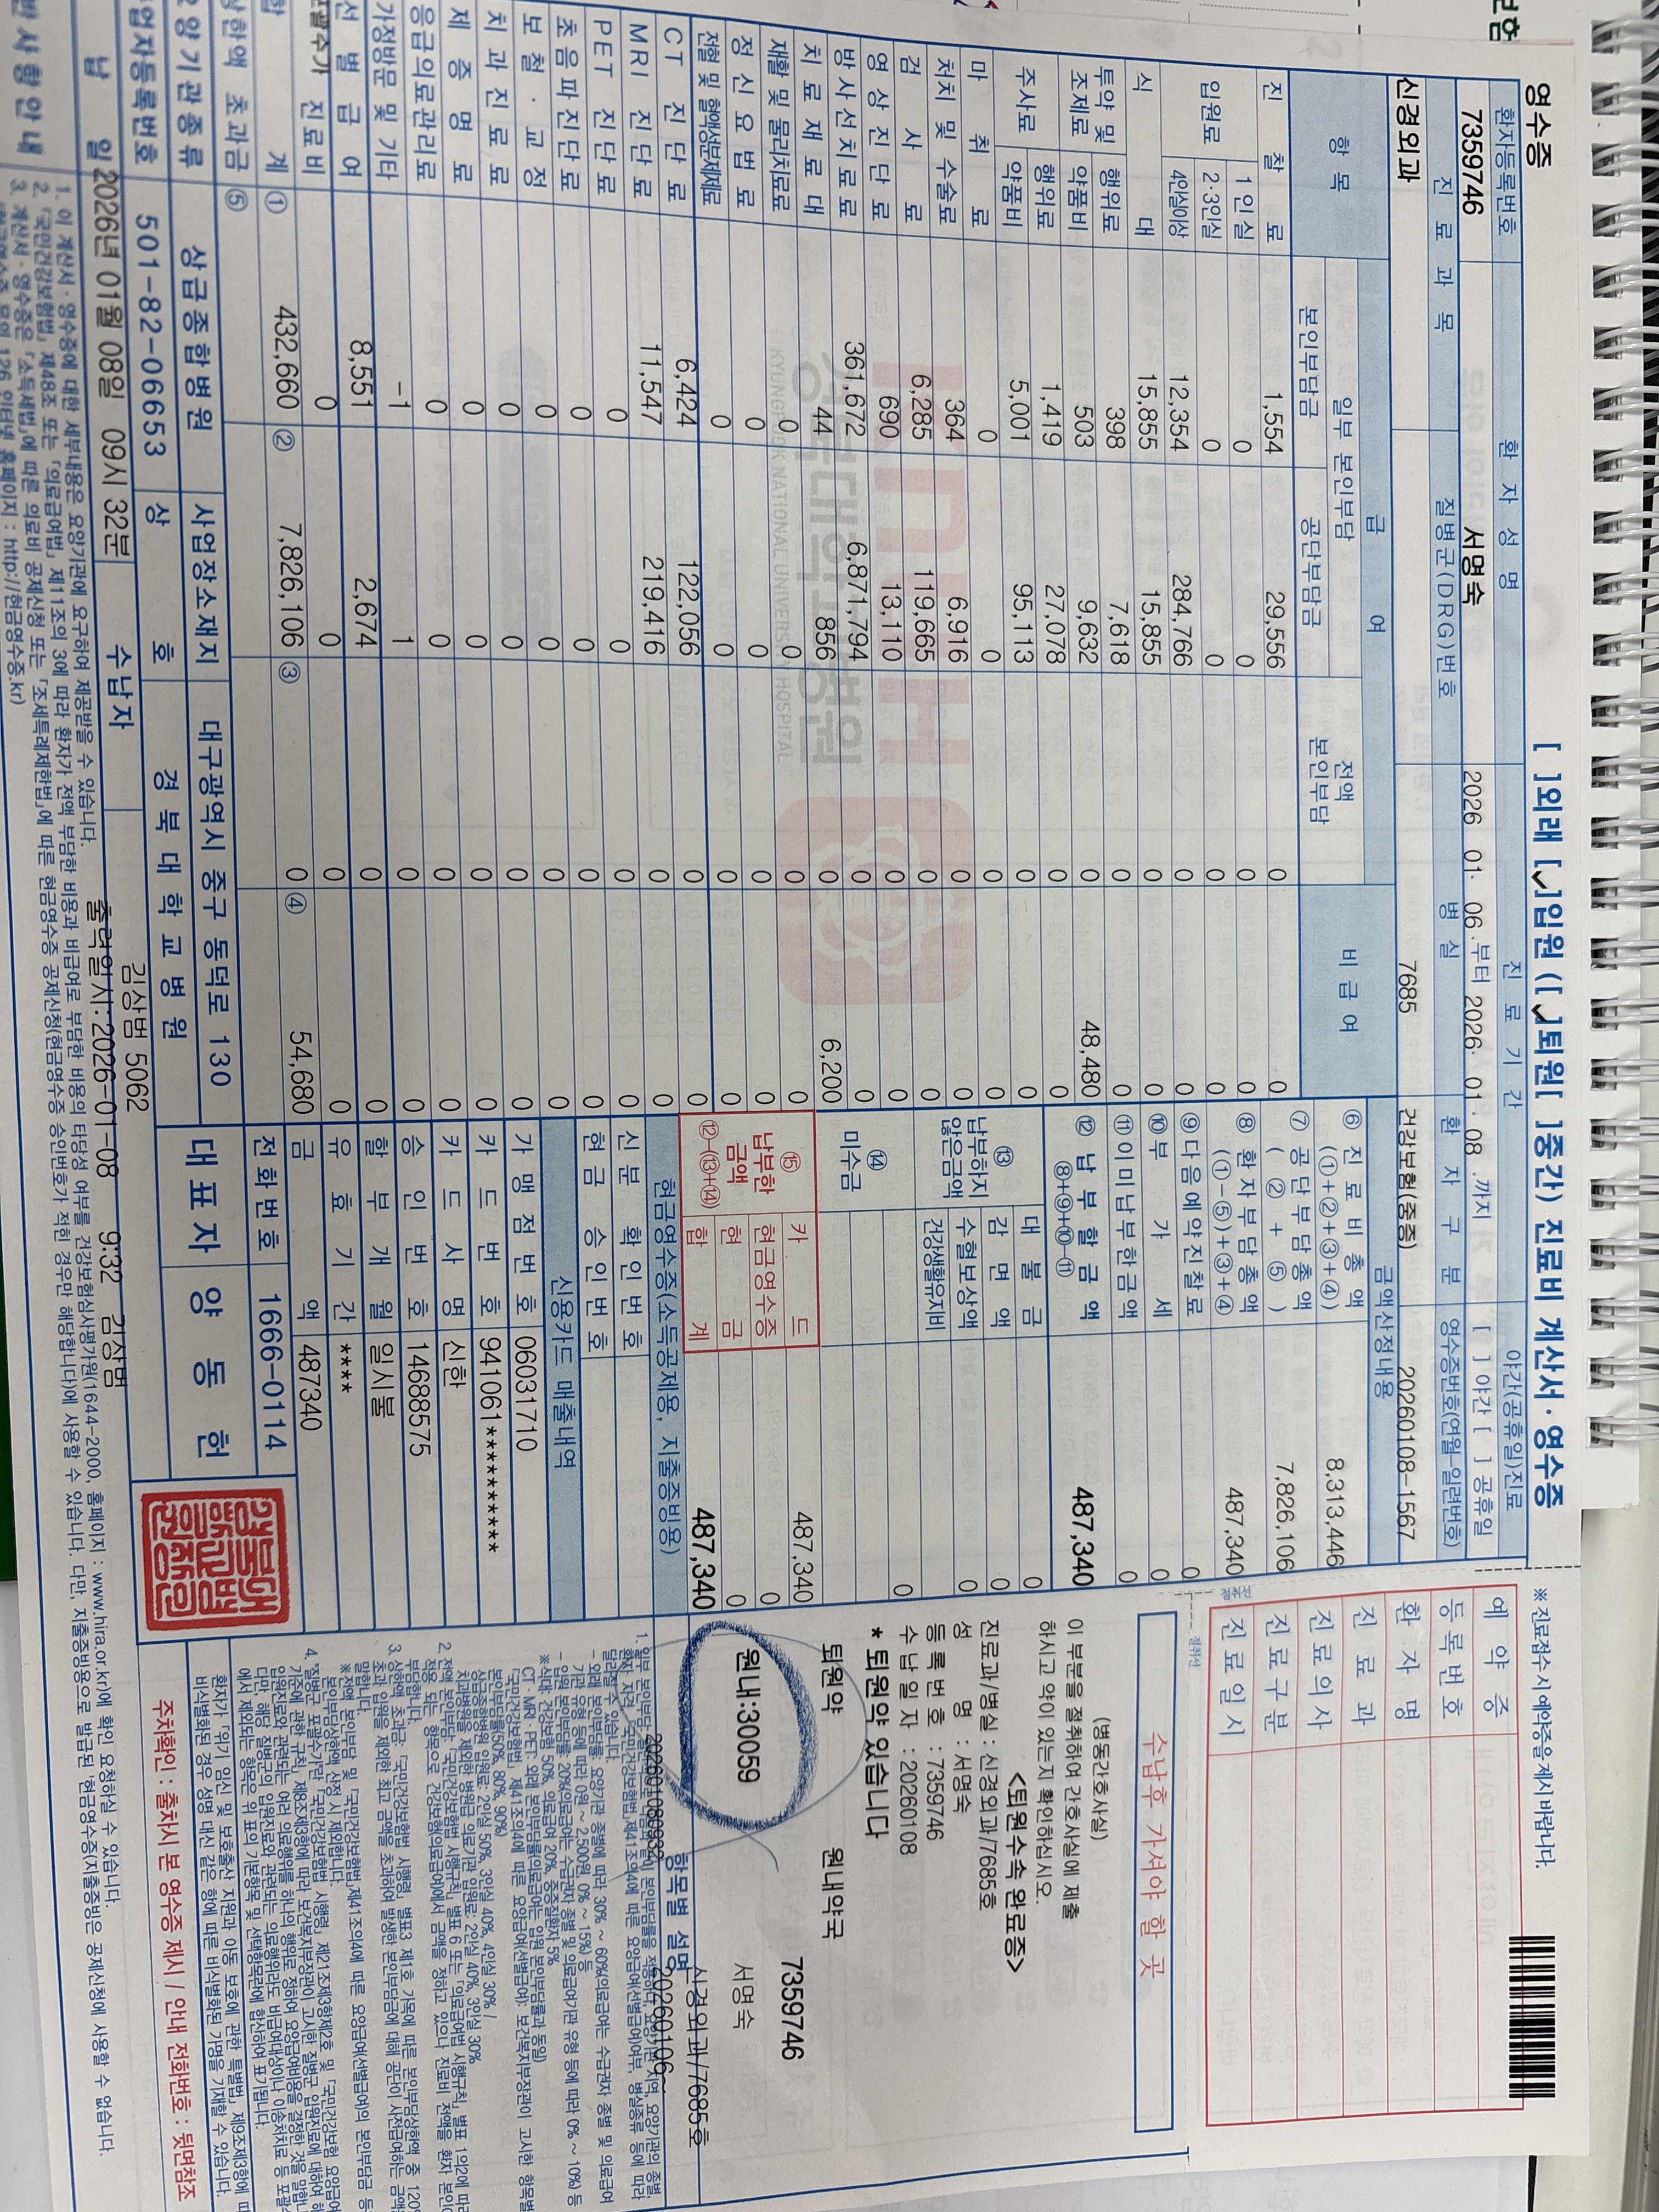 영수증
[ ]외래 [✓]입원 ([✓]퇴원[ ]중간) 진료비 계산서 · 영수증
환자등록번호 환 자 성 명 진 료 기 간 야간(공휴일)진료
7359746 서명숙 2026 01· 06 ·부터 2026· 01· 08 ·까지 [ ] 야간 [ ] 공휴일
진 료 과 목 질병군(DRG)번호 병 실 환 자 구 분 영수증번호(연월-일련번호)
신경외과 7685 건강보험(중증) 20260108-1567
항 목 급 여 비 급 여 금액산정내용
일부 본인부담 전액 본인부담
본인부담금 공단부담금
진 찰 료 1,554 29,556 0 0
입원료 1인실 0 0 0 0
2·3인실 0 0 0 0
4인실이상 12,354 284,766 0 0
식 대 15,855 15,855 0 0
투약 및 조제료 행위료 398 7,618 0 0
약품비 503 9,632 0 48,480
주사료 행위료 1,419 27,078 0 0
약품비 5,001 95,113 0 0
마 취 료 0 0 0 0
처치 및 수술료 364 6,916 0 0
검 사 료 6,285 119,665 0 0
영 상 진 단 료 690 13,110 0 0
방 사 선 치 료 료 361,672 6,871,794 0 0
치 료 재 료 대 44 856 0 6,200
재활 및 물리치료료 0 0 0 0
정 신 요 법 료 0 0 0 0
전혈 및 혈액성분제제료 0 0 0 0
CT 진 단 료 6,424 122,056 0 0
MRI 진 단 료 11,547 219,416 0 0
PET 진 단 료 0 0 0 0
초음파진단료 0 0 0 0
보 철 · 교 정 0 0 0 0
치 과 진 료 료 0 0 0 0
제 증 명 료 0 0 0 0
응급의료관리료 0 0 0 0
가정방문 및 기타 -1 1 0 0
선 별 급 여 8,551 2,674 0 0
포괄수가 진료비 0 0 0 0
합 계 ① 432,660 ② 7,826,106 ③ 0 ④ 54,680
상한액 초과금 ⑤
⑥ 진 료 비 총 액 (①+②+③+④) 8,313,446
⑦ 공 단 부 담 총 액 ( ② + ⑤ ) 7,826,106
⑧ 환 자 부 담 총 액 (①-⑤)+③+④ 487,340
⑨ 다음예약진찰료 0
⑩ 부 가 세 0
⑪ 이미납부한금액 0
⑫ 납 부 할 금 액 ⑧+⑨+⑩-⑪ 487,340
⑬ 납부하지 않은금액 대 불 금 0
감 면 액 0
수혈보상액 0
건강생활유지비
⑭ 미수금 0
⑮ 납부한 금액 ⑫-(⑬+⑭) 카 드 487,340
현금영수증 0
현 금 0
합 계 487,340
현금영수증(소득공제용, 지출증빙용)
신 분 확 인 번 호
현 금 승 인 번 호
신용카드 매출내역
가 맹 점 번 호 06031710
카 드 번 호 941061**********
카 드 사 명 신한
승 인 번 호 14688575
할 부 개 월 일시불
유 효 기 간 ****
금 액 487340
요 양 기 관 종 류 상급종합병원 사업장소재지 대구광역시 중구 동덕로 130 전화번호 1666-0114
사업자등록번호 501-82-06653 상 호 경 북 대 학 교 병 원 대 표 자 양 동 헌
납 일 2026년 01월 08일 09시 32분 수납자 김상범 5062
출력일시: 2026-01-08 9:32 김상범
1. 이 계산서 · 영수증에 대한 세부내용은 요양기관에 요구하여 제공받을 수 있습니다.
2. 「국민건강보험법」 제48조 또는 「의료급여법」 제11조의 3에 따라 환자가 전액 부담한 비용과 비급여로 부담한 비용의 타당성 여부를 건강보험심사평가원(1644-2000, 홈페이지 : www.hira.or.kr)에 확인 요청하실 수 있습니다.
3. 계산서 · 영수증은 「소득세법」에 따른 의료비 공제신청 또는 「조세특례제한법」에 따른 현금영수증 공제신청(현금영수증 승인번호가 적힌 경우만 해당합니다)에 사용할 수 있습니다. 다만, 지출증빙용으로 발급된 현금영수증(지출증빙)은 공제신청에 사용할 수 없습니다.
knuh
경북대학교병원
KYUNGPOOK NATIONAL UNIVERSITY HOSPITAL
※ 진료접수 시 예약증을 제시 바랍니다.
예 약 증
등 록 번 호
환 자 명
진 료 과
진 료 의 사
진 료 구 분
진 료 일 시
절취선
절취선
수납후 가셔야 할 곳
(병동간호사실)
이 부분을 절취하여 간호사실에 제출
하시고 약이 있는지 확인하십시오.
<퇴원수속 완료증>
진료과/병실 : 신경외과/7685호
성 명 : 서명숙
등 록 번 호 : 7359746
수 납 일 자 : 20260108
* 퇴원약 있습니다
퇴원약 원내약국
7359746
원내:30059 서명숙
신경외과/7685호
항목별 설명
20260106~
202601080932
주차확인 : 출차시 본 영수증 제시 / 안내 전화번호 : 뒷면참조